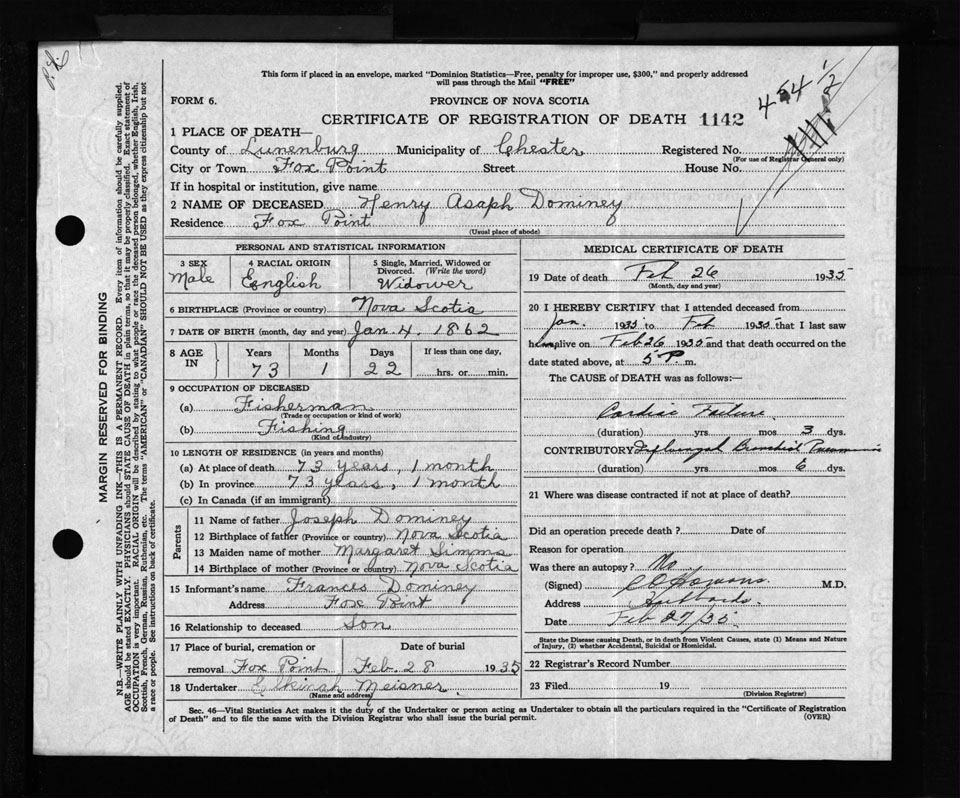 P.L.
This form if placed in an envelope, marked "Dominion Statistics—Free, penalty for improper use, $300," and properly addressed
will pass through the Mail "FREE"
454 1/2
FORM 6.
PROVINCE OF NOVA SCOTIA
CERTIFICATE OF REGISTRATION OF DEATH 1142
1 PLACE OF DEATH—
County of Lunenburg Municipality of Chester Registered No.
(For use of Registrar General only)
City or Town Fox Point Street House No.
If in hospital or institution, give name
2 NAME OF DECEASED Henry Asaph Dominey
Residence Fox Point
(Usual place of abode)
PERSONAL AND STATISTICAL INFORMATION
3 SEX Male
4 RACIAL ORIGIN English
5 Single, Married, Widowed or Divorced. (Write the word) Widower
6 BIRTHPLACE (Province or country) Nova Scotia
7 DATE OF BIRTH (month, day and year) Jan. 4. 1862
8 AGE IN Years 73 Months 1 Days 22 If less than one day, hrs. or min.
9 OCCUPATION OF DECEASED
(a) Fisherman
(Trade or occupation or kind of work)
(b) Fishing
(Kind of industry)
10 LENGTH OF RESIDENCE (in years and months)
(a) At place of death 73 years, 1 month
(b) In province 73 years, 1 month
(c) In Canada (if an immigrant)
Parents
11 Name of father Joseph Dominey
12 Birthplace of father (Province or country) Nova Scotia
13 Maiden name of mother Margaret Simms
14 Birthplace of mother (Province or country) Nova Scotia
15 Informant's name Frances Dominey
Address Fox Point
16 Relationship to deceased Son
17 Place of burial, cremation or Date of burial
removal Fox Point Feb. 28 1935
18 Undertaker Elkinah Meisner
(Name and address)
MEDICAL CERTIFICATE OF DEATH
19 Date of death Feb 26 1935
(Month, day and year)
20 I HEREBY CERTIFY that I attended deceased from
Jan. 1935 to Feb 1935 that I last saw
him alive on Feb 26 1935 and that death occurred on the
date stated above, at 5 P. m.
The CAUSE of DEATH was as follows:—
Cardiac Failure
(duration) yrs. mos 3 dys.
CONTRIBUTORY Bronchial Pneumonia
(duration) yrs mos 6 dys.
21 Where was disease contracted if not at place of death?
Did an operation precede death? Date of
Reason for operation
Was there an autopsy? No
(Signed) M.D.
Address Hubbards.
Date Feb 27/35
State the Disease causing Death, or in death from Violent Causes, state (1) Means and Nature
of Injury, (2) whether Accidental, Suicidal or Homicidal.
22 Registrar's Record Number
23 Filed 19
(Division Registrar)
Sec. 46—Vital Statistics Act makes it the duty of the Undertaker or person acting as Undertaker to obtain all the particulars required in the "Certificate of Registration
of Death" and to file the same with the Division Registrar who shall issue the burial permit.
(OVER)
MARGIN RESERVED FOR BINDING
N.B.—WRITE PLAINLY WITH UNFADING INK—THIS IS A PERMANENT RECORD. Every item of information should be carefully supplied.
AGE should be stated EXACTLY. PHYSICIANS should STATE CAUSE OF DEATH in plain terms, so that it may be properly classified. Exact statement of
OCCUPATION is very important. RACIAL ORIGIN will be described by stating to what people or race the deceased person belonged, whether English, Irish,
Scottish, French, German, Russian, Ruthenian, etc. The terms "AMERICAN" or "CANADIAN" SHOULD NOT BE USED as they express citizenship but not
a race or people. See instructions on back of certificate.